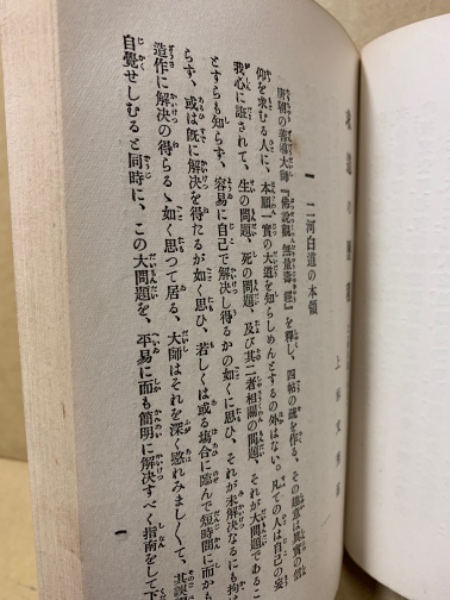 一　二河白道の本領
唐朝の善導大師『佛說觀無量壽經』を釋し、四帖の疏を作る、その
仰を求むる人に、本願一實の大道を知らしめんとするの外はない。凡ての人は自己の
我心に誑されて、生の問題、死の問題、及び其二者相關の問題、それが大問題であるこ
とすらも知らず、容易に自己で解決し得るかの如くに思ひ、それが未解決なるにも拘は
らず、或は旣に解決を得たるが如く思ひ、若しくは或る場合に臨んで短時間に而かも
造作に解決の得らるゝ如く思つて居る、大師はそれを深く愍れみまし〱て、其誤
自覺せしむると同時に、この大問題を、平易に而も簡明に解決すべく指南をして下
一